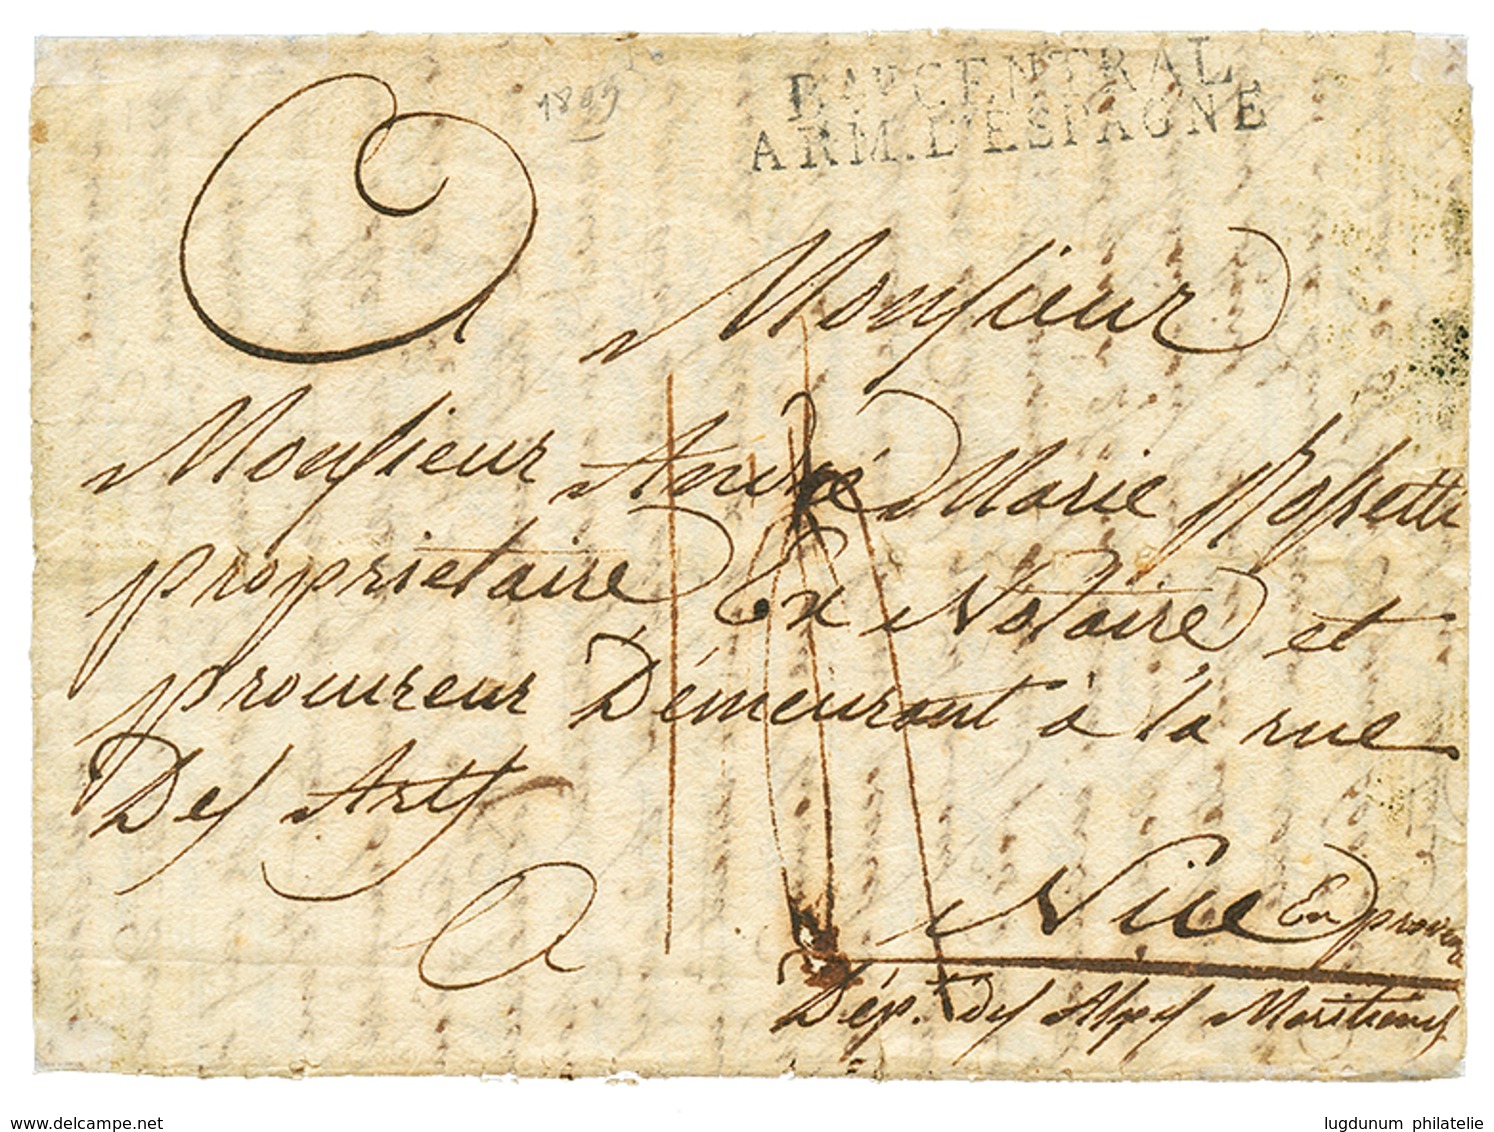 1809
Bᴬᵁ CENTRAL
ARM. D'ESPAGNE
A Monsieur
Monsieur André Marie Rossetti
proprietaire Ex Notaire et
procureur Démeurant à la rue
Des Arts
A Nice En provence
Dép.t des Alpes Maritimes
delcampe.net
lugdunum philatelie